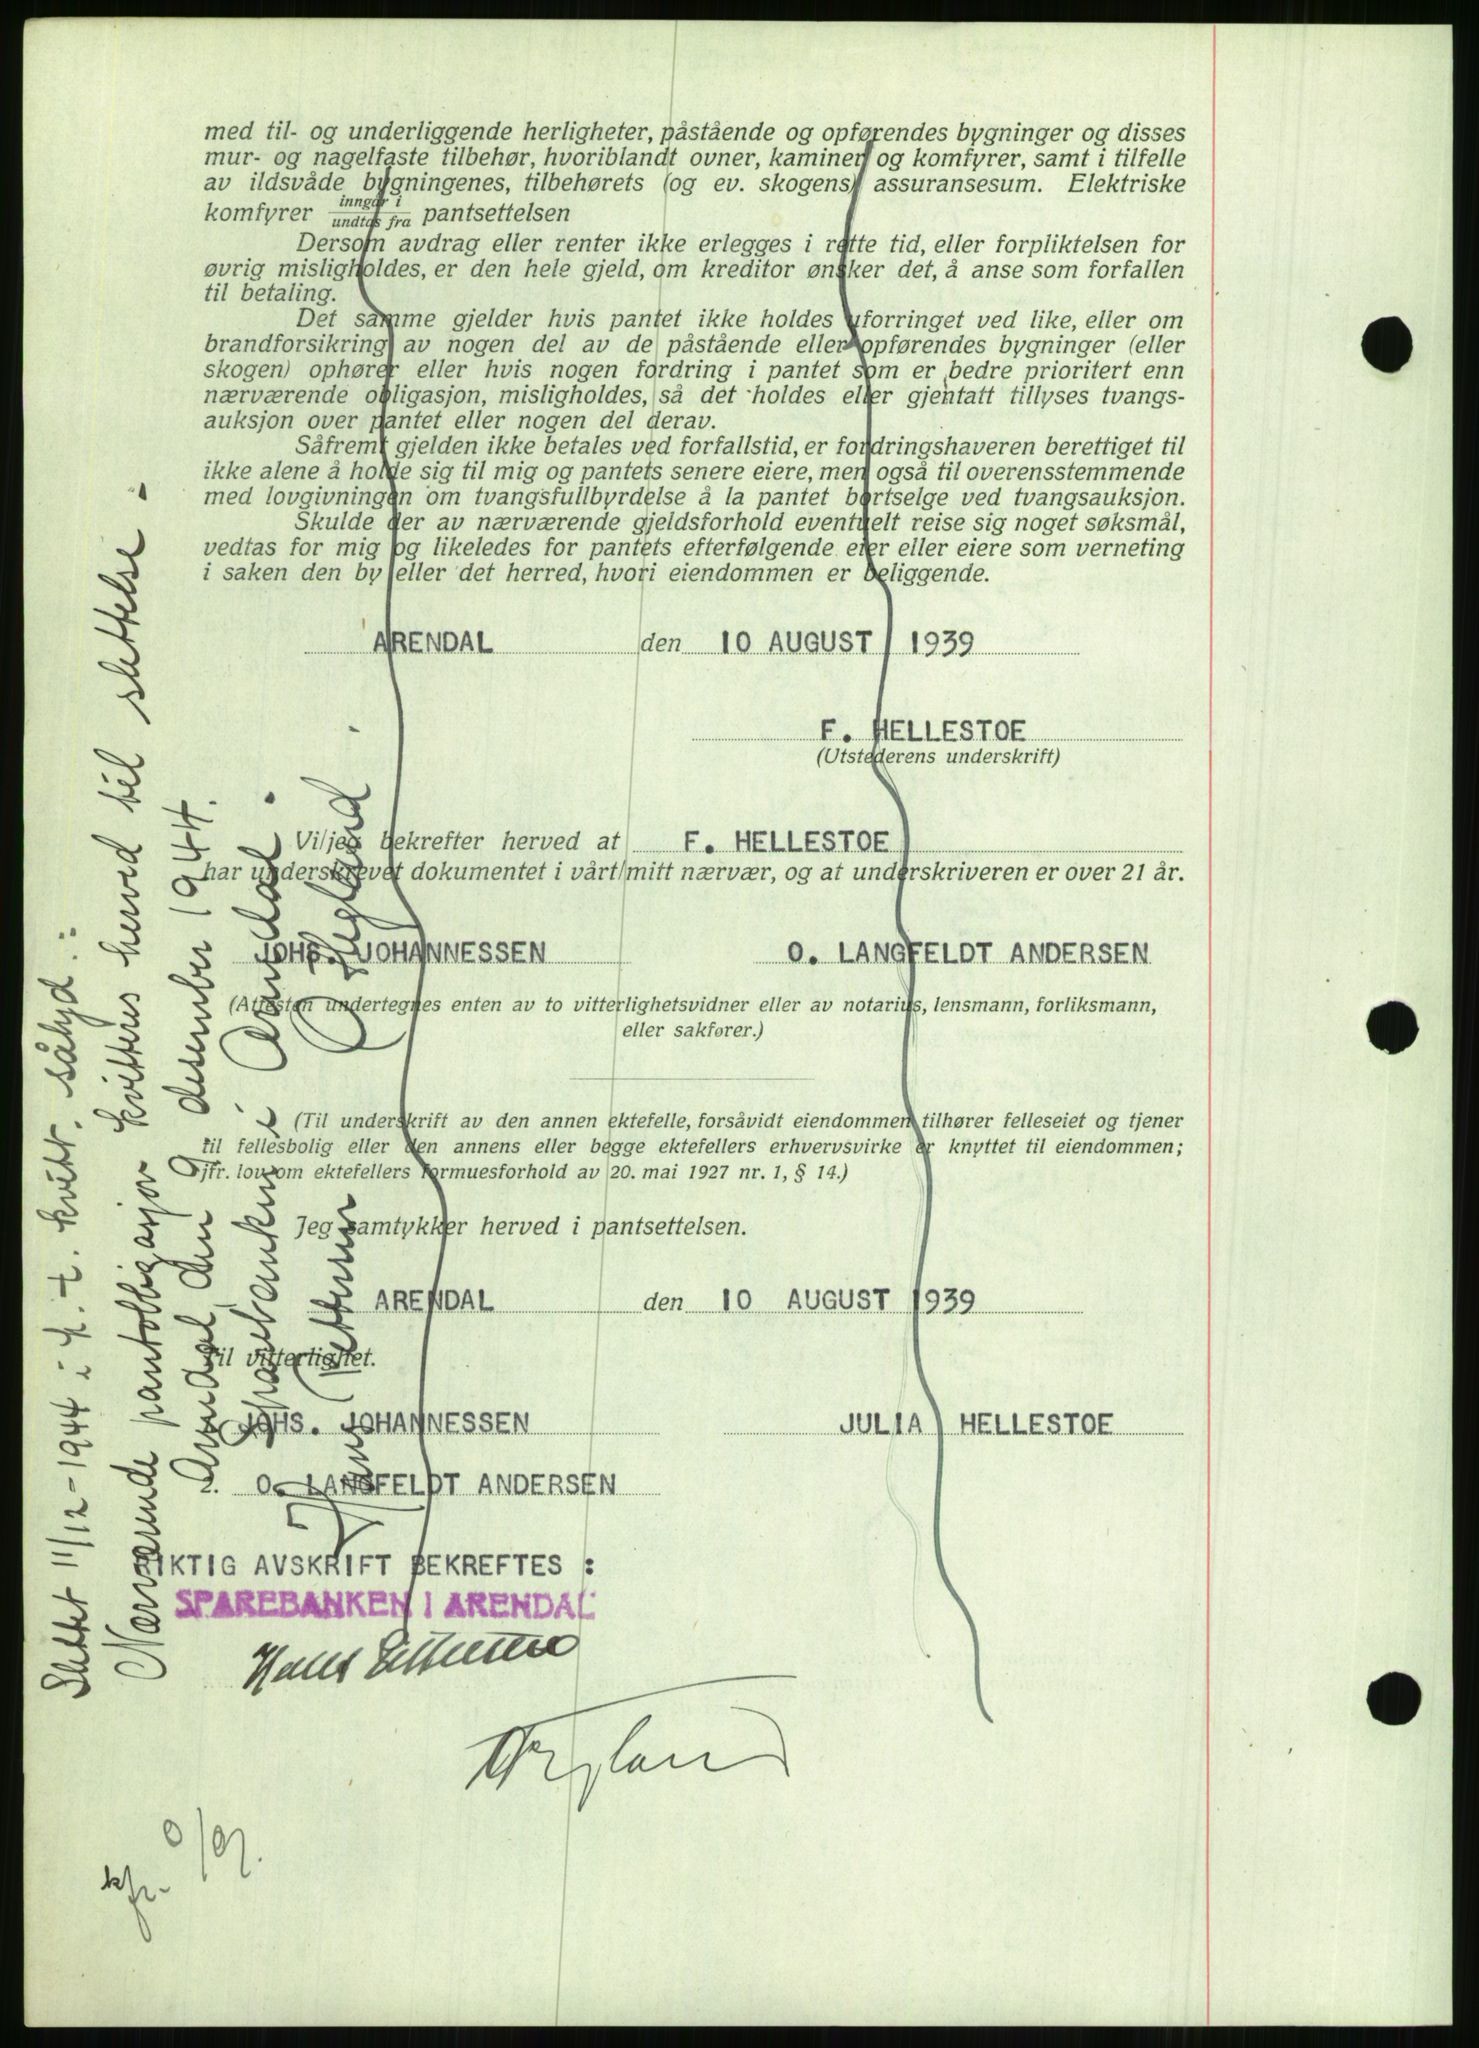 med til- og underliggende herligheter, påstående og opførendes bygninger og disses
mur- og nagelfaste tilbehør, hvoriblandt ovner, kaminer og komfyrer, samt i tilfelle
av ildsvåde bygningenes, tilbehørets (og ev. skogens) assuransesum. Elektriske
komfyrer inngår i / undtas fra pantsettelsen
Dersom avdrag eller renter ikke erlegges i rette tid, eller forpliktelsen for
øvrig misligholdes, er den hele gjeld, om kreditor ønsker det, å anse som forfallen
til betaling.
Det samme gjelder hvis pantet ikke holdes uforringet ved like, eller om
brandforsikring av nogen del av de påstående eller opførendes bygninger (eller
skogen) ophører eller hvis nogen fordring i pantet som er bedre prioritert enn
nærværende obligasjon, misligholdes, så det holdes eller gjentatt tillyses tvangs-
auksjon over pantet eller nogen del derav.
Såfremt gjelden ikke betales ved forfallstid, er fordringshaveren berettiget til
ikke alene å holde sig til mig og pantets senere eiere, men også til overensstemmende
med lovgivningen om tvangsfullbyrdelse å la pantet bortselge ved tvangsauksjon.
Skulde der av nærværende gjeldsforhold eventuelt reise sig noget søksmål,
vedtas for mig og likeledes for pantets efterfølgende eier eller eiere som verneting
i saken den by eller det herred, hvori eiendommen er beliggende.
ARENDAL den 10 AUGUST 1939
F. HELLESTOE
(Utstederens underskrift)
Vi/jeg bekrefter herved at F. HELLESTOE
har underskrevet dokumentet i vårt/mitt nærvær, og at underskriveren er over 21 år.
JOHS. JOHANNESSEN O. LANGFELDT ANDERSEN
(Attesten undertegnes enten av to vitterlighetsvidner eller av notarius, lensmann, forliksmann,
eller sakfører.)
(Til underskrift av den annen ektefelle, forsåvidt eiendommen tilhører felleseiet og tjener
til fellesbolig eller den annens eller begge ektefellers erhvervsvirke er knyttet til eiendommen;
jfr. lov om ektefellers formuesforhold av 20. mai 1927 nr. 1, § 14.)
Jeg samtykker herved i pantsettelsen.
ARENDAL den 10 AUGUST 1939
Til vitterlighet.
JOHS. JOHANNESSEN JULIA HELLESTOE
2. O. LANGFELDT ANDERSEN
RIKTIG AVSKRIFT BEKREFTES :
SPAREBANKEN I ARENDAL
Slettet 11/12-1944 i h. t. kvitt. sålyd:
Nærværende pantobligasjon kvitteres herved til slettelse.
Arendal, den 9 desember 1944.
Sparebanken i Arendal.